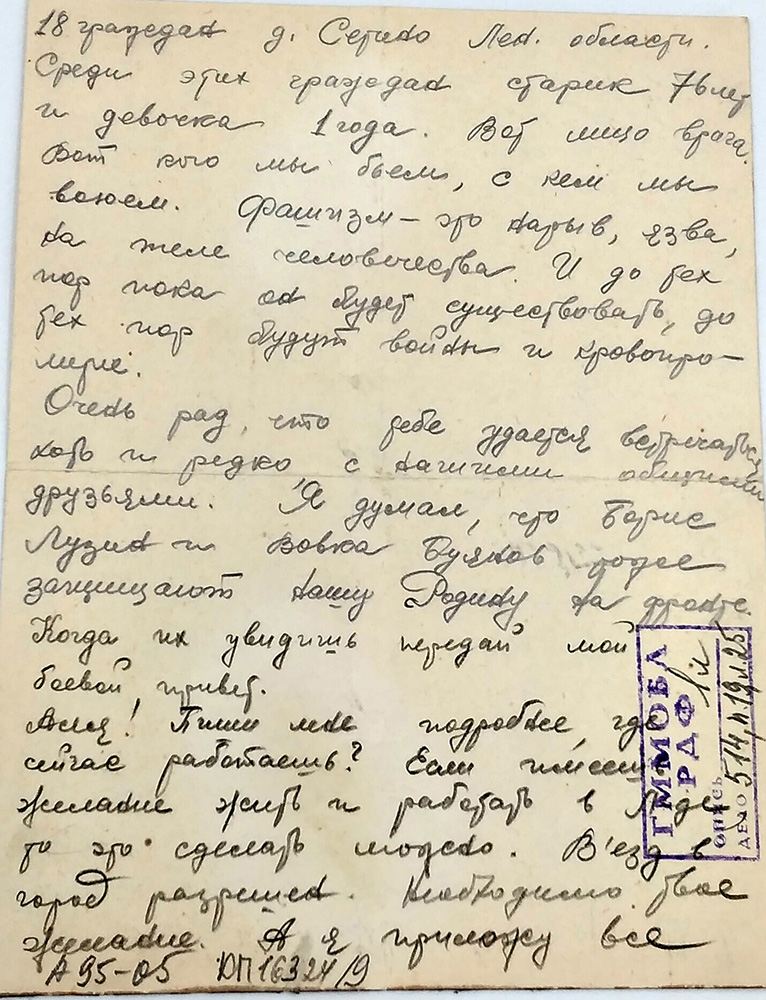 18 граждан д. Сетино Лен. области.
Среди этих граждан старик 76 лет
и девочка 1 года. Вот лицо врага.
Вот кого мы бьем, с кем мы
воюем. Фашизм – это нарыв, язва,
на теле человечества. И до тех
пор пока он будет существовать, до
тех пор будут войны и кровопро-
лития.
Очень рад, что тебе удается встречаться
хоть и редко с нашими общими
друзьями. Я думал, что Борис
Лузин и Вовка Буянов тоже
защищают нашу Родину на фронте.
Когда их увидишь передай мой
боевой привет.
Ася! Пиши мне подробнее, где
сейчас работаешь? Если имеешь
желание жить и работать в
то это сделать можно. В'езд в
город разрешен. Необходимо твое
желание. А я приложу все
А 95-05 ЮП 16324/9
ГММОБЛ
РДФ 1и
опись
дело 514,п19л25